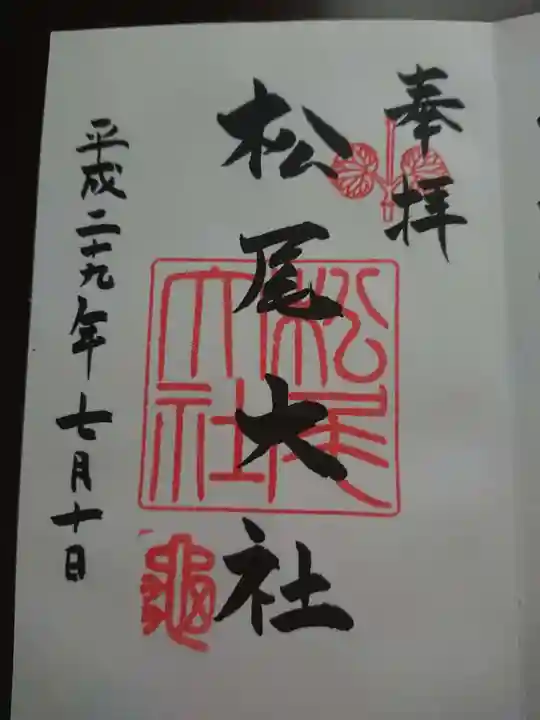 奉拝
松尾大社
松尾大社
亀
平成二十九年七月十日